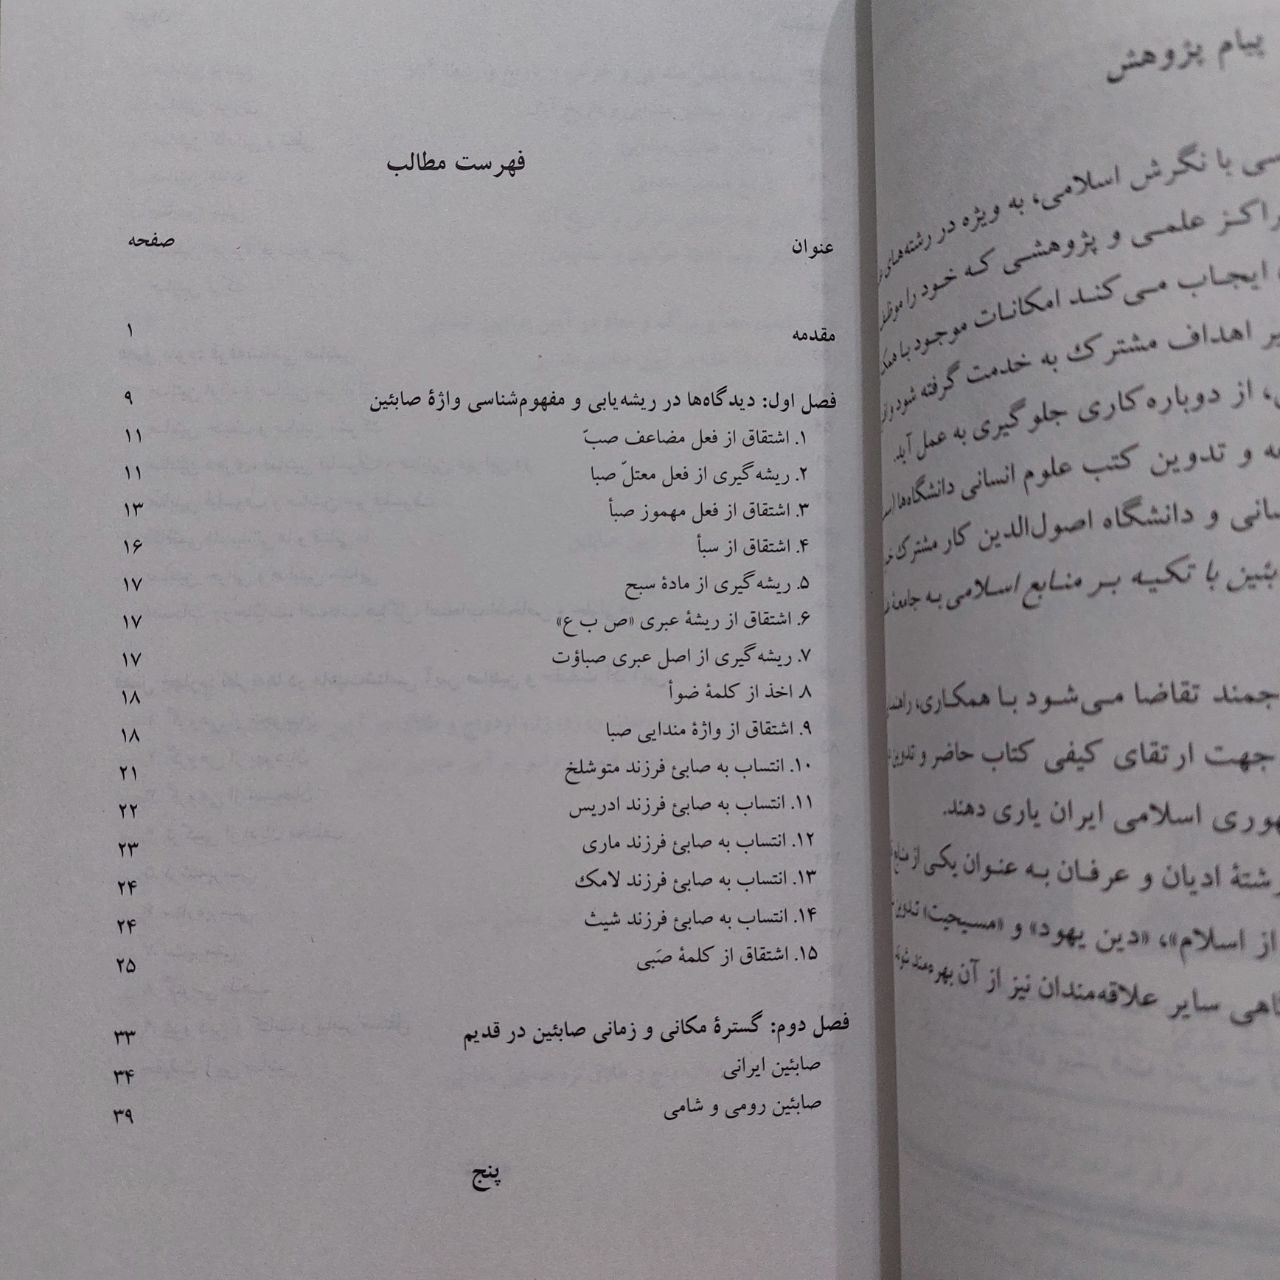 پیام پژوهش
با نگرش اسلامی، به ویژه در رشته‌های
علمی و پژوهشی که خود را
ایجاب می‌کند امکانات موجود با
اهداف مشترک به خدمت گرفته شود
از دوباره‌کاری جلوگیری به عمل آید.
و تدوین کتب علوم انسانی دانشگاه‌ها
و دانشگاه اصول‌الدین کار مشترک
با تکیه بر منابع اسلامی به جامعهٔ
تقاضا می‌شود با همکاری،
جهت ارتقای کیفی کتاب حاضر و
اسلامی ایران یاری دهند.
ادیان و عرفان به عنوان یکی از
از اسلام»، «دین یهود» و «مسیحیت»
سایر علاقه‌مندان نیز از آن بهره‌مند
فهرست مطالب
عنوان صفحه
مقدمه ۱
فصل اول: دیدگاه‌ها در ریشه‌یابی و مفهوم‌شناسی واژهٔ صابئین ۹
۱. اشتقاق از فعل مضاعف صبّ ۱۱
۲. ریشه‌گیری از فعل معتلّ صبا ۱۱
۳. اشتقاق از فعل مهموز صبأ ۱۳
۴. اشتقاق از سبأ ۱۶
۵. ریشه‌گیری از مادهٔ سبح ۱۷
۶. اشتقاق از ریشهٔ عبری «ص ب ع» ۱۷
۷. ریشه‌گیری از اصل عبری صباؤت ۱۷
۸. اخذ از کلمهٔ ضوأ ۱۸
۹. اشتقاق از واژهٔ مندایی صبا ۱۸
۱۰. انتساب به صابئ فرزند متوشلخ ۲۱
۱۱. انتساب به صابئ فرزند ادریس ۲۲
۱۲. انتساب به صابئ فرزند ماری ۲۳
۱۳. انتساب به صابئ فرزند لامک ۲۴
۱۴. انتساب به صابئ فرزند شیث ۲۴
۱۵. اشتقاق از کلمهٔ صَبی ۲۵
فصل دوم: گسترهٔ مکانی و زمانی صابئین در قدیم ۳۳
صابئین ایرانی ۳۴
صابئین رومی و شامی ۳۹
پنج